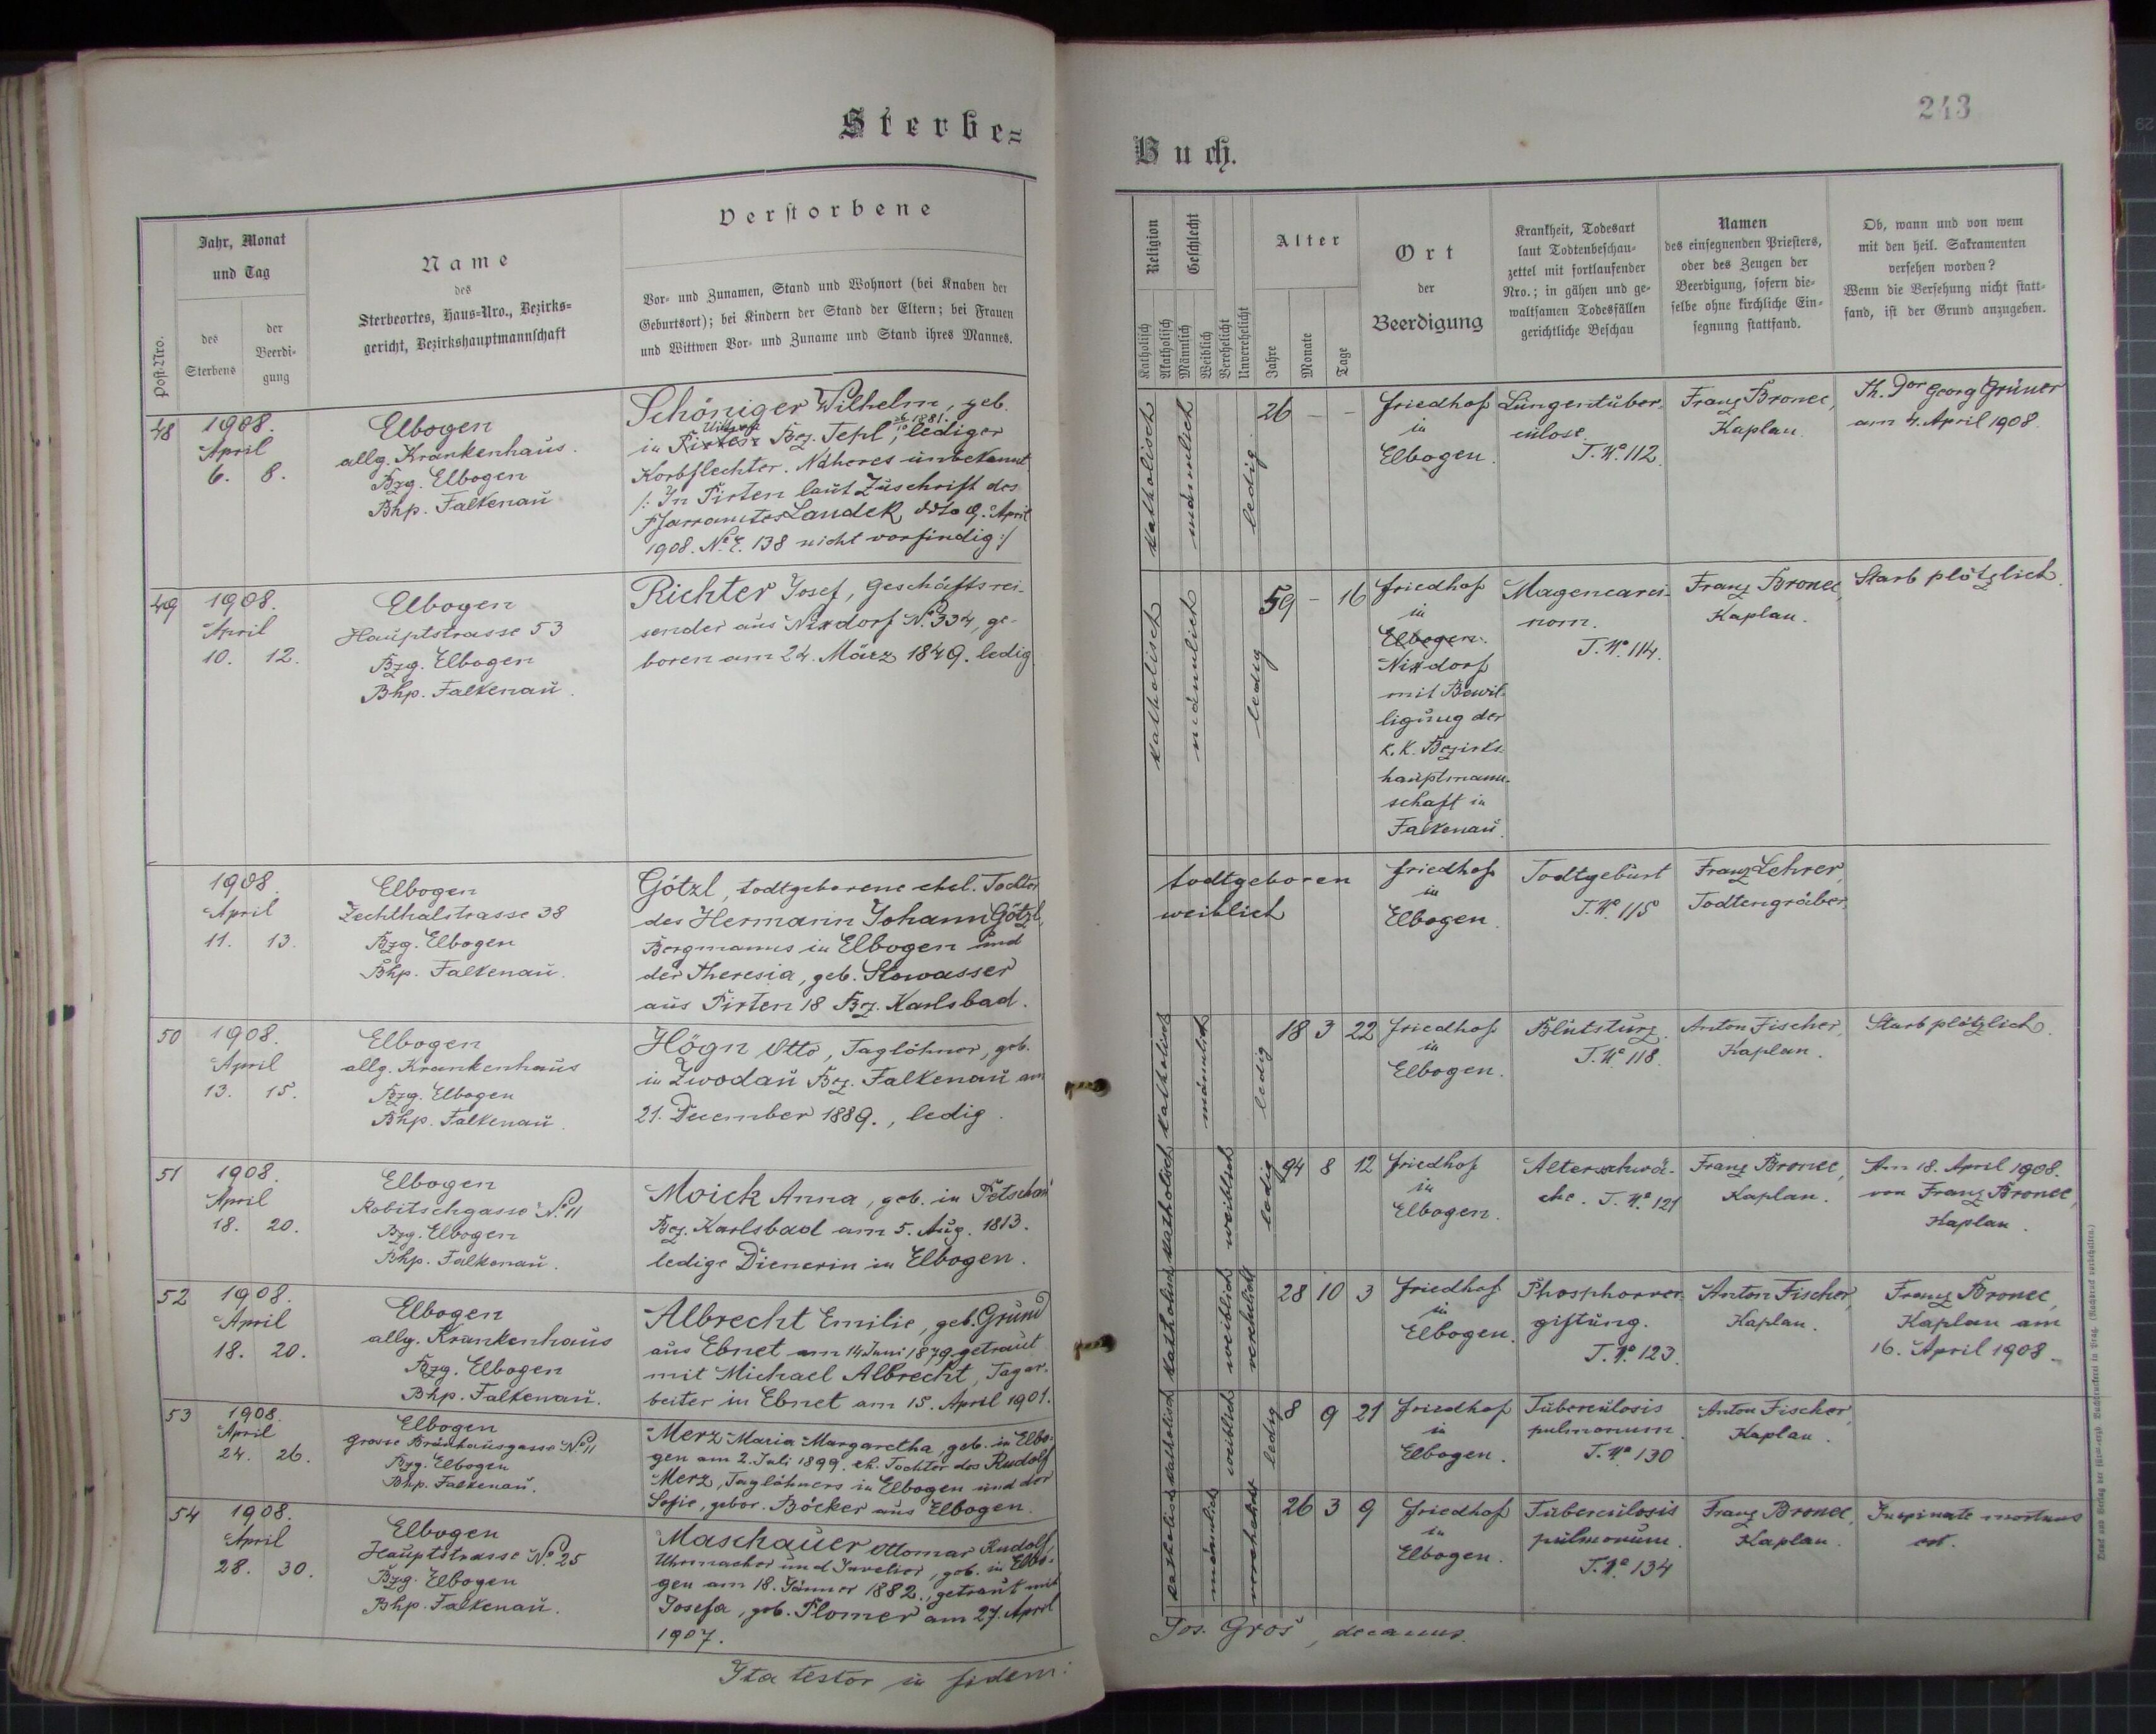 Sterbe=
Buch.
243
Post-Nro.
Jahr, Monat
und Tag
des
Sterbens
der
Beerdi-
gung
Name
des
Sterbeortes, Haus-Nro., Bezirks-
gericht, Bezirkshauptmannschaft
Verstorbene
Vor- und Zunamen, Stand und Wohnort (bei Knaben der
Geburtsort); bei Kindern der Stand der Eltern; bei Frauen
und Wittwen Vor- und Zuname und Stand ihres Mannes.
Religion
Katholisch
Akatholisch
Geschlecht
Männlich
Weiblich
Verehelicht
Unverehelicht
Alter
Jahre
Monate
Tage
Ort
der
Beerdigung
Krankheit, Todesart
laut Todtenbeschau-
zettel mit fortlaufender
Nro.; in gähen und ge-
waltsamen Todesfällen
gerichtliche Beschau
Namen
des einsegnenden Priesters,
oder des Zeugen der
Beerdigung, sofern die-
selbe ohne kirchliche Ein-
segnung stattfand.
Ob, wann und von wem
mit den heil. Sakramenten
versehen worden?
Wenn die Versehung nicht statt-
fand, ist der Grund anzugeben.
48
1908.
April
6. 8.
Elbogen
allg. Krankenhaus.
Bzg. Elbogen
Bhp. Falkenau
Schöniger Wilhelm, geb.
1881.
in Pirten Bez. Tepl, lediger
Korbflechter. Näheres unbekannt
/: In Pirten laut Zuschrift des
Pfarramtes Landek ddto 9. April
1908. N.E. 138 nicht vorfindig :/
katholisch
männlich
ledig
26 – –
Friedhof
in
Elbogen.
Lungentuber-
culose.
T.Nº 112.
Franz Bronec,
Kaplan.
Th. Dor Georg Grüner
am 4. April 1908.
49
1908.
April
10. 12.
Elbogen
Hauptstrasse 53
Bzg. Elbogen
Bhp. Falkenau.
Richter Josef, Geschäftsrei-
sender aus Nixdorf Nº 334, ge-
boren am 24. März 1849. ledig
katholisch
männlich
ledig
59 – 16
Friedhof
in
Elbogen.
Nixdorf
mit Bewil-
ligung der
k.k. Bezirks-
hauptmann-
schaft in
Falkenau.
Magencarci-
nom.
T.Nº 114.
Franz Bronec,
Kaplan.
Starb plötzlich.
1908.
April
11. 13.
Elbogen
Zechthalstrasse 38
Bzg. Elbogen
Bhp. Falkenau.
Götzl, todtgeborene ehel. Tochter
des Hermann Johann Götzl,
Bergmanns in Elbogen und
der Theresia, geb. Stowasser
aus Pirten 18 Bez. Karlsbad.
todtgeboren
weiblich
Friedhof
in
Elbogen.
Todtgeburt
T.Nº 115
Franz Lehrer,
Todtengräber.
50
1908.
April
13. 15.
Elbogen
allg. Krankenhaus
Bzg. Elbogen
Bhp. Falkenau.
Högn Otto, Taglöhner, geb.
in Zwodau Bez. Falkenau am
21. December 1889., ledig.
katholisch
männlich
ledig
18 3 22
Friedhof
in
Elbogen.
Blutsturz.
T.Nº 118.
Anton Fischer,
Kaplan.
Starb plötzlich.
51
1908.
April
18. 20.
Elbogen
Robitschgasse Nº 11
Bzg. Elbogen
Bhp. Falkenau.
Moick Anna, geb. in Petschau
Bez. Karlsbad am 5. Aug. 1813.
ledige Dienerin in Elbogen.
katholisch
weiblich
ledig
94 8 12
Friedhof
in
Elbogen.
Altersschwä-
che. T.Nº 121
Franz Bronec,
Kaplan.
Am 18. April 1908.
von Franz Bronec,
Kaplan.
52
1908.
April
18. 20.
Elbogen
allg. Krankenhaus
Bzg. Elbogen
Bhp. Falkenau.
Albrecht Emilie, geb. Grund
aus Ebnet am 14 Juni 1879 getraut
mit Michael Albrecht, Tagar-
beiter in Ebnet am 15. April 1901.
katholisch
weiblich
verehelicht
28 10 3
Friedhof
in
Elbogen.
Phosphorver-
giftung.
T.Nº 123.
Anton Fischer,
Kaplan.
Franz Bronec,
Kaplan am
16. April 1908.
53
1908.
April
24. 26.
Elbogen
Grosse Bräuhausgasse Nº 11
Bzg. Elbogen
Bhp. Falkenau.
Merz Maria Margaretha, geb. in Elbo-
gen am 2. Juli 1899. eh. Tochter des Rudolf
Merz, Taglöhners in Elbogen und der
Sofie, gebor. Böcker aus Elbogen.
katholisch
weiblich
ledig
8 9 21
Friedhof
in
Elbogen.
Tuberculosis
pulmonum.
T.Nº 130
Anton Fischer,
Kaplan.
54
1908.
April
28. 30.
Elbogen
Hauptstrasse Nº 25
Bzg. Elbogen
Bhp. Falkenau.
Maschauer Ottomar Rudolf,
Uhrmacher und Juvelier, geb. in Elbo-
gen am 18. Jänner 1882., getraut mit
Josefa, geb. Plomer am 27. April
1907.
katholisch
männlich
verehelicht
26 3 9
Friedhof
in
Elbogen.
Tuberculosis
pulmonum.
T.Nº 134
Franz Bronec,
Kaplan.
mortuus
est.
Ita testor in fidem:
Jos. Groš, decanus.